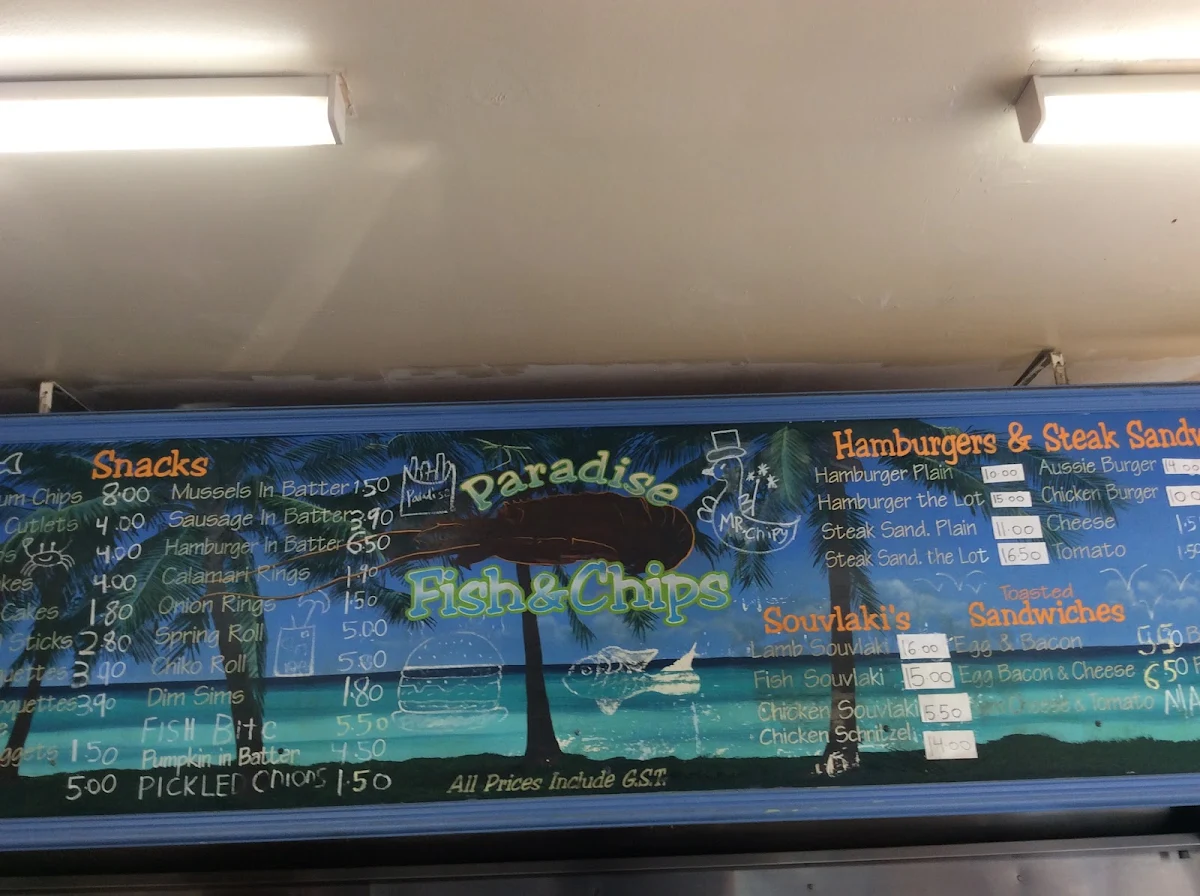 Snacks
um Chips 8.00
Cutlets 4.00
4.00
kes 4.00
Cakes 1.80
Sticks 2.80
uettes 3.90
quettes 3.90
ggets 1.50
5.00
Mussels In Batter 1.50
Sausage In Batter 3.90
Hamburger In Batter 6.50
Calamari Rings 1.90
Onion Rings 1.50
Spring Roll 5.00
Chiko Roll 5.00
Dim Sims 1.80
FISH BiTe 5.50
Pumpkin in Batter 4.50
PICKLED ONIONS 1.50
Paradise
Paradise
Fish & Chips
MR Chipy
All Prices Include G.S.T.
Hamburgers & Steak Sandw
Hamburger Plain 10.00
Hamburger the Lot 15.00
Steak Sand. Plain 11.00
Steak Sand. the Lot 16.50
Aussie Burger 14.0
Chicken Burger 10.0
Cheese 1.5
Tomato 1.5
Souvlaki's
Lamb Souvlaki 16.00
Fish Souvlaki 15.00
Chicken Souvlaki 550
Chicken Schnitzel 14.00
Toasted
Sandwiches
Egg & Bacon 5.50
Egg Bacon & Cheese 6.50
Cheese & Tomato